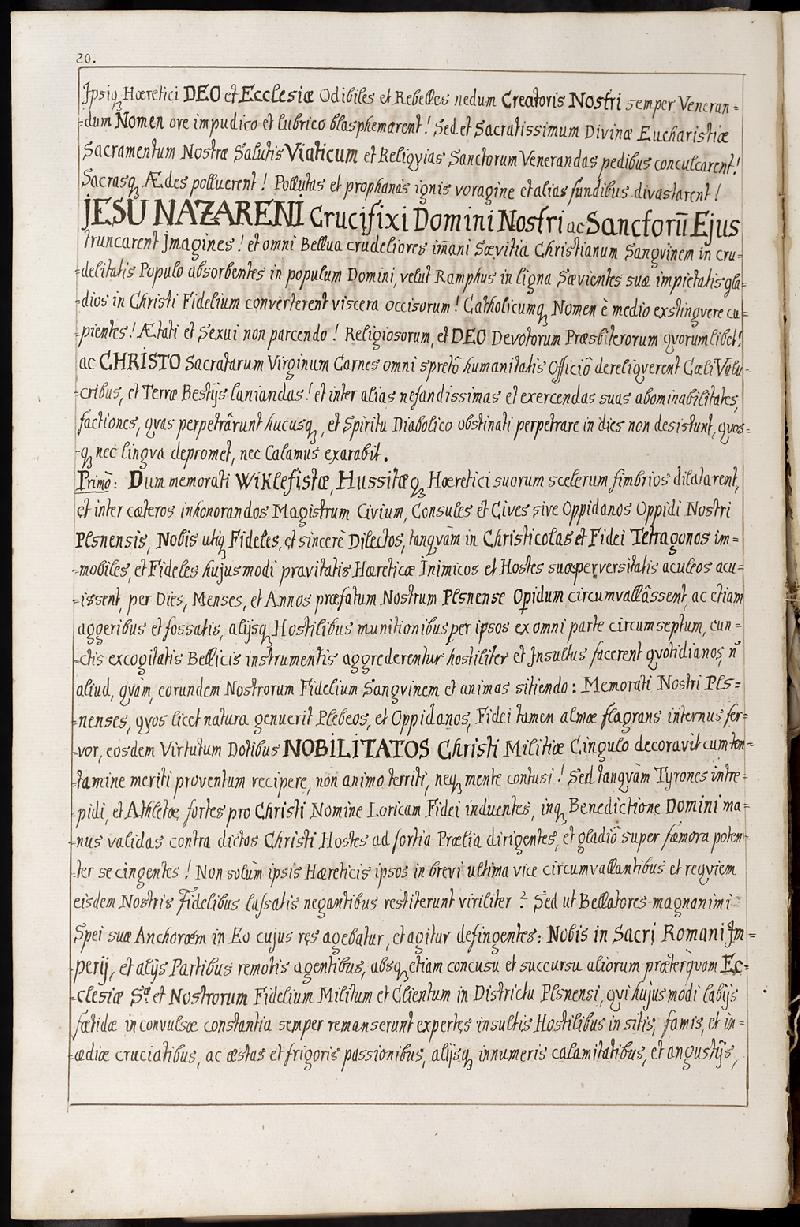 20.
Ipsiq Hæretici DEO et Ecclesiæ Odibiles et Rebelles nedum Creatoris Nostri semper Veneran=
dum Nomen ore impudico et lubrico blasphemarent! Sed et Sacratissimum Divinæ Eucharistiæ
Sacramentum Nostræ Salutis Viaticum et Religvias Sanctorum Venerandas pedibus conculcarent!
Sacrasq Ædes polluerent! Pollutas et prophanas ignis voragine et alias funditus divastarent!
JESU NAZARENI Crucifixi Domini Nostri ac Sanctorū Ejus
truncarent Jmagines! et omni Bellua crudeliores imani Sævitia Christianum Sangvinem in cru=
delitatis Populo absorbentes in populum Domini, velut Ramphus in ligna Sævientes suæ impietatis gla=
dios in Christi Fidelium converterent viscera occisorum! Catholicumq Nomen è medio exstingvere cu=
pientes! Ætati et Sexui non parcendo! Religiosorum, et DEO Devotorum Præsbiterorum qvorumlibet!
ac CHRISTO Sacratarum Virginum Carnes omni spretô humanitatis Officiô dereliqverent Cœli Volu=
cribus, et Terræ Bestijs laniandas! et inter alias nefandissimas et exercendas suas abominabilitates,
factiones, qvas perpetrârunt hucusq, et Spiritu Diabolico obstinati perpetrare in dies non desistunt, qvos=
q nec lingva depromet, nec Calamus exarabit.
Primò: Dum memorati Wiklefistæ, Hussitæq Hæretici suorum scelerum fimbrios dilatarent,
et inter cæteros inhonorandos Magistrum Civium, Consules et Cives sive Oppidanos Oppidi Nostri
Plsnensis, Nobis utiq Fideles, et sincerè Dilectos, tanqvam in Christicolas et Fidei Tetragonos im=
mobiles, et Fideles hujusmodi pravitatis Hæreticæ Inimicos et Hostes suæ perversitatis aculeos acu=
issent, per Dies, Menses, et Annos præfatum Nostrum Plsnense Opidum circumvallâssent, ac etiam
aggeribus et fossatis, alijsq Hostilibus munitionibus per ipsos ex omni parte circumseptum, cun=
ctis excogitatis Bellicis instrumentis aggrederentur hostiliter et Jnsultus facerent qvotidianos, n̄
aliud, qvam, eorundem Nostrorum Fidelium Sangvinem et animas sitiendo: Memorati Nostri Pls=
nenses, qvos licet natura genuerit Plebeos, et Oppidanos, Fidei tamen almæ flagrans internus fer=
vor, eosdem Virtutum Dotibus NOBILITATOS Christi Militiæ Cingulo decoravit cum ten=
tamine meriti proventum recipere, non animo territi, neq mente confusi! Sed tanqvam Tyrones intre=
pidi, et Athletæ, fortes pro Christi Nomine Loricam Fidei induentes, inq Benedictione Domini ma=
nus validas contra dictos Christi Hostes ad fortia Prælia dirigentes, et gladiô super fæmora poten=
ter se cingentes! Non solùm ipsis Hæreticis ipsos in brevi ultima vice circumvallantibus et reqviem
eisdem Nostris Fidelibus lassatis negantibus restiterunt viriliter? Sed ut Bellatores magnanimi
Spei suæ Anchoram in Eo cujus res agebatur, et agitur defingentes: Nobis in Sacri Romani Jm=
perij, et alijs Partibus remotis agentibus, absq etiam concusu et succursu aliorum præterqvam Ec=
clesiæ Stæ et Nostrorum Fidelium Militum et Clientum in Districtu Plsnensi, qvi hujusmodi labijs
fætidæ inconvulsæ constantia semper remanserunt expertes insultis Hostilibus in sitis, famis, et in=
ædiæ cruciatibus, ac æstas et frigoris passionibus, alijsq innumeris calamitatibus, et angustijs,